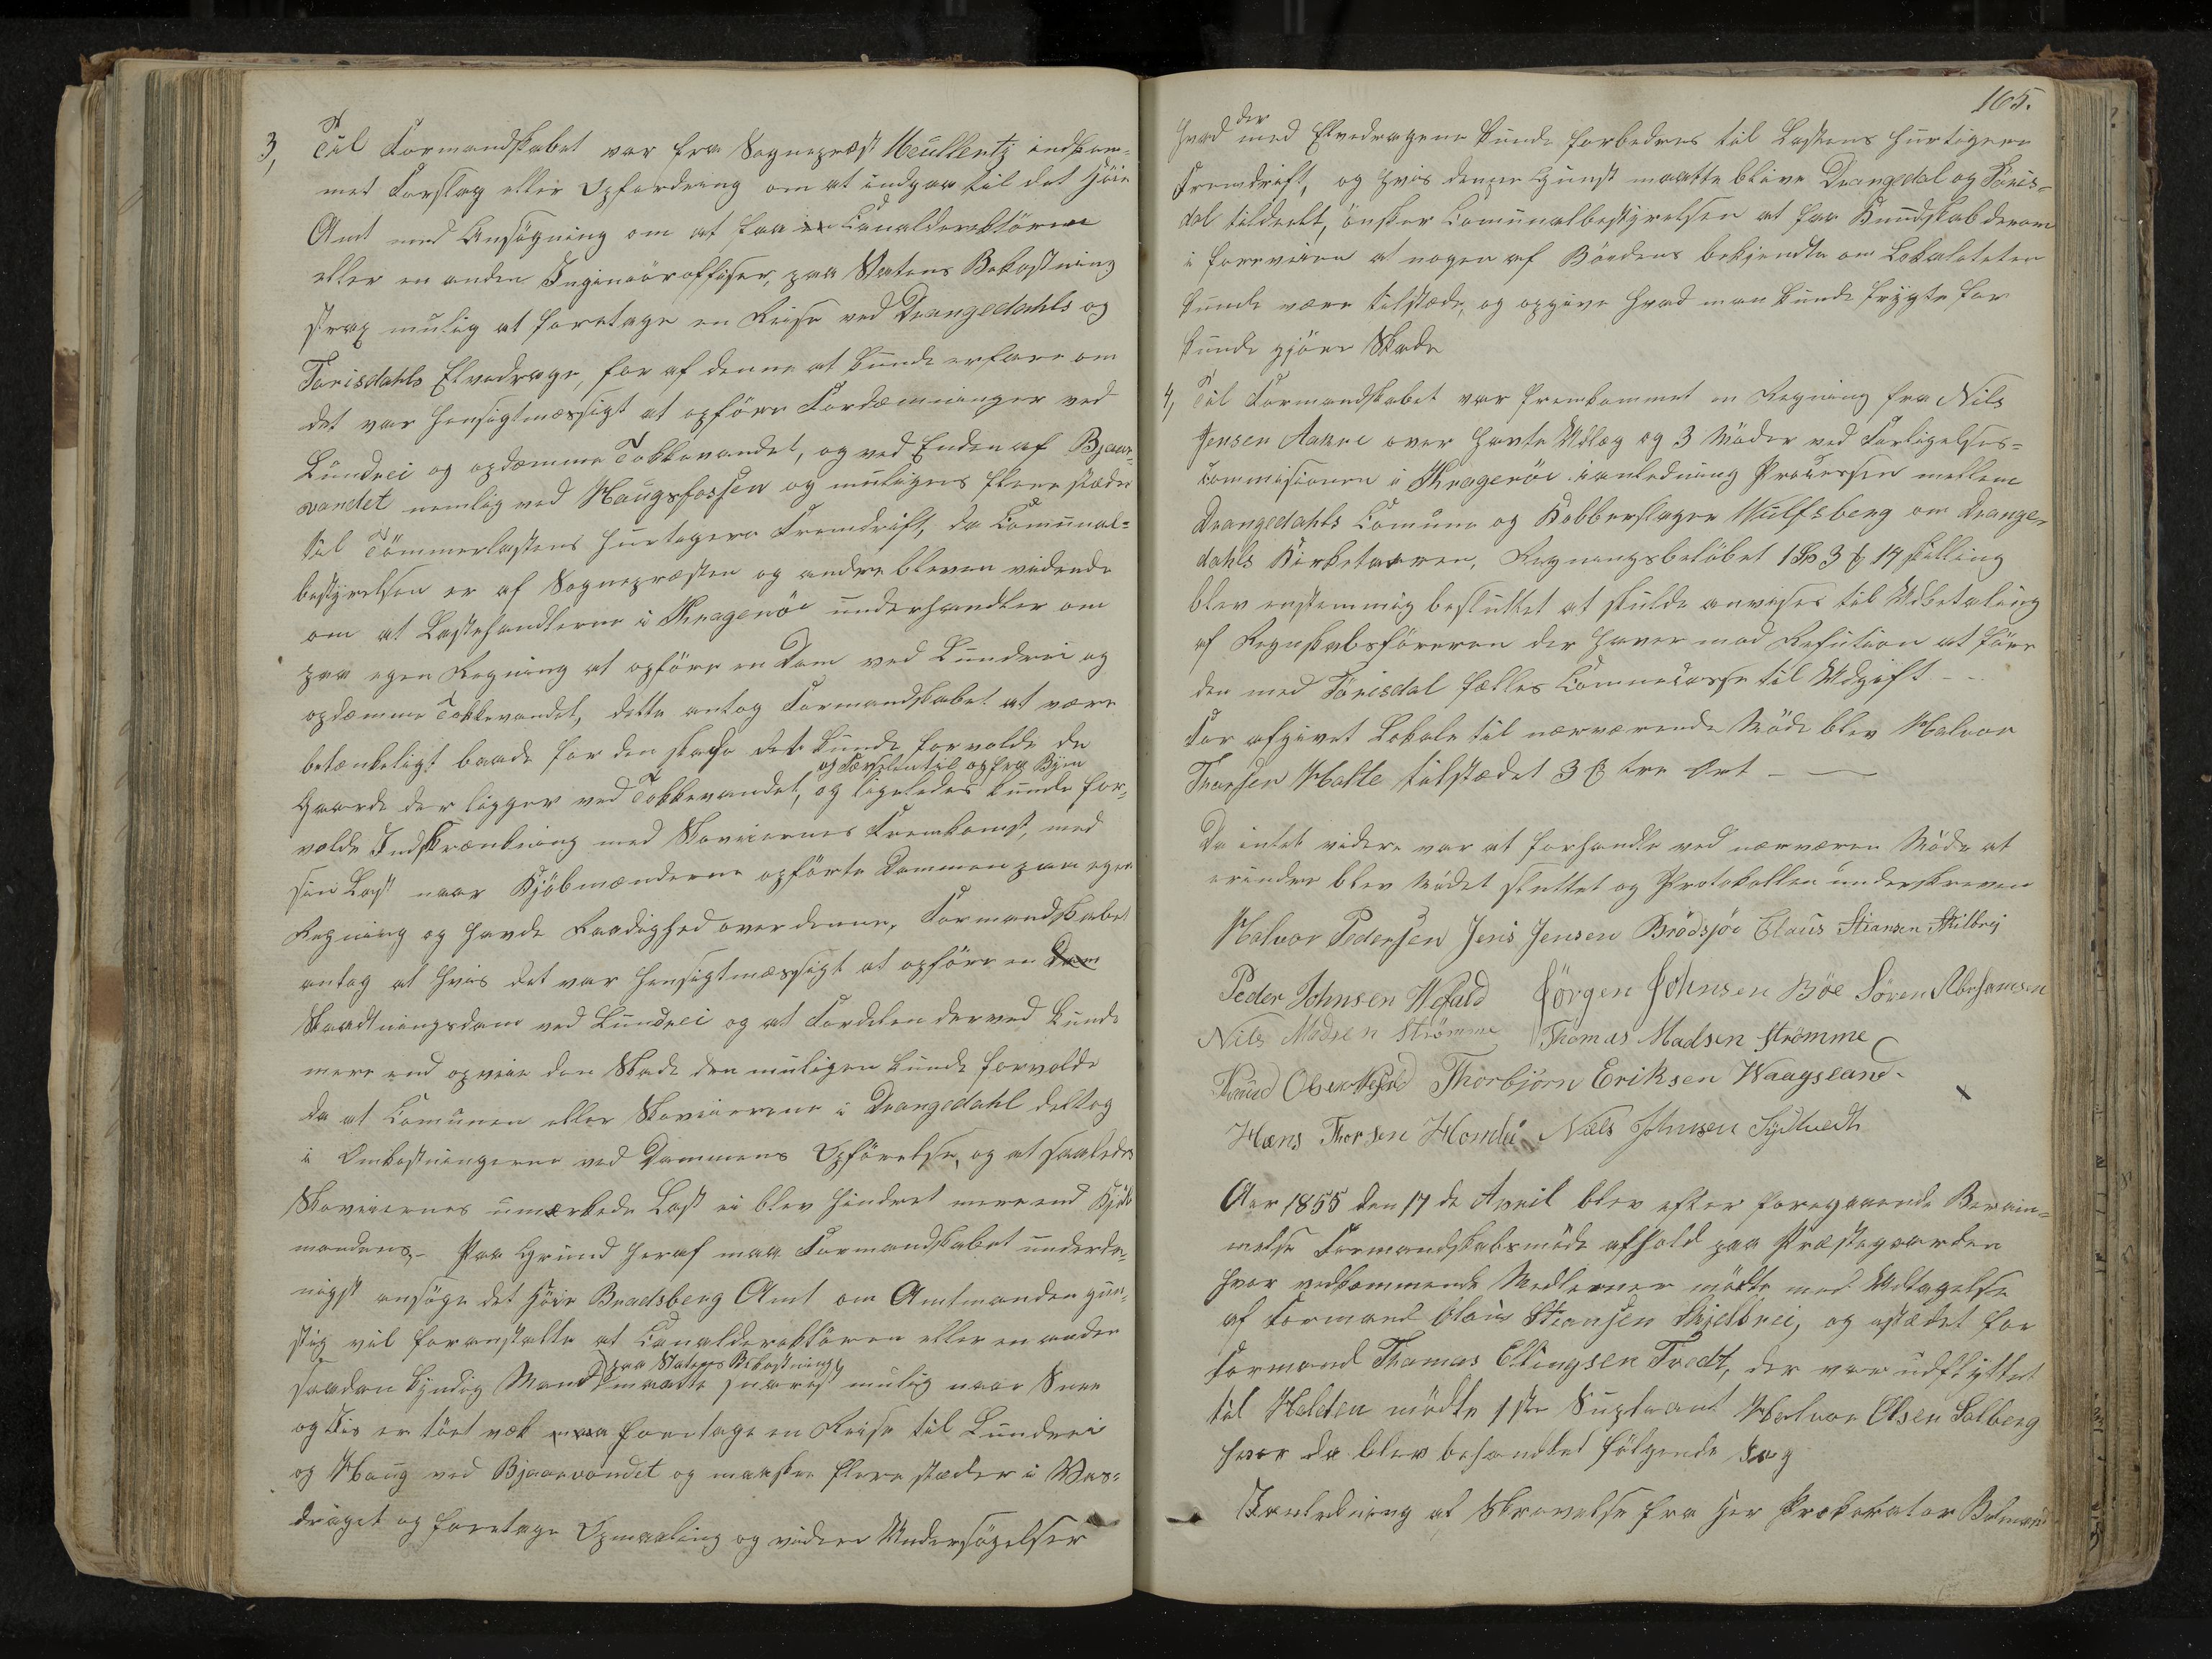 3, Til Formandskabet var fra Sognepræst Meullentz indkom-
met Forslag eller Opfordring om at indgaa til det Høie
Amt med Ansøgning om at faa en Canaldirektøren
eller en anden Ingeniørofficer, paa Statens Bekostning
strax mulig at foretage en Reise ved Drangedahls og
Tørisdahls Elvedrage, for af denne at kunde erfare om
det var hensigtmæssigt at opføre Fordæmninger ved
Lundrei og opdæmme Tokkevandet, og ved Enden af Bjaar-
vandet nemlig ved Haugsfossen og muligens flere stæder
til Tømmerlastens hurtigere Fremdrift, da Comunal-
bestyrelsen er af Sognepræsten og andre bleven vidende
om at Lastehandlerne i Kragerøe underhandler om
paa egen Regning at opføre en Dam ved Lundrei og
opdæmme Tokkevandet, dette antog Formandskabet at være
betænkeligt baade for den skade det kunde forvolde de
og Færselen til og fra Byen
Gaarde der ligger ved Tokkevandet, og ligeledes kunde for-
volde Indskrænkning med Skoveiernes Fremkomst, med
sin Last naar Kjøbmænderne opførte Dammen paa egen
Regning og havde Raadighed over denne, Formandskabet
antog at hvis det var hensigtmæssigt at opføre en Dam
Skaadtningsdam ved Lundrei og at Fordelen derved kunde
mere end opveie den Skade den muligen kunde forvolde
da at Comunen eller Skoveierene i Drangedahl deltog
i Omkostningerne ved Dammens Opførelse, og at saaledes
Skoveiernes umærkede Last ei blev hindret mere end Kjøb
mandens,- Paa Grund heraf maa Formandskabet underda-
nigst ansøge det Høie Bradsberg Amt om Amtmanden gun-
stig vil foranstalte at Canaldirektøren eller en anden
paa Statens Bekostning
saadan kyndig Mand maatte snarest mulig naar Snee
og Iis er tøet væk maa foretage en Reise til Lundrei
og Haug ved Bjaarvandet og maaskee flere stæder i Vas-
draget og foretage Opmaaling og videre Undersøgelser
165.
der
hvad med Elvedragene kunde forbedres til Lastens hurtigere
Fremdrift, og hvis denne Gunst maatte blive Drangedal og Tøris-
dal tildeelt, ønsker Comunalbestyrelsen at faa Kundskab derom
i forveien at nogen af Bøndens bekjendte om Lokaliteten
kunde være tilstæde, og opgive hvad man kunde frygte for
kunde gjøre Skade
4, Til Formandskabet var fremkommet en Regning fra Nils
Jensen Aakre over havte Udlæg og 3 Møder ved Forligelses-
commisionen i Kragerøe i anledning Processen mellem
Drangedahls Comune og Kobberslager Wulfsberg om Drange-
dahls Kirketaaren, Regningsbeløbet 1 Sp 3 ₰ 14 skilling
blev enstemmig besluttet at skulde anvises til Udbetaling
af Regnskabsføreren der haver mod Refution at føre
den med Tørisdal fælles Comunecasse til Udgift - -
For afgivet Lokale til nærværende Møde blev Halvor
Thorsen Holte tilstædet 3 ₰ tre Ort - —
Da intet videre var at forhandle ved nærværen Møde at
erindre blev Mødet sluttet og Protokollen underskreven
Halvor Pedersen Jens Jensen Brødsjøe Claus Stiansen Stilbrej
Peder Johnsen Wefald Jørgen Johnsen Bøe Søren Abrahamsen
Nils Madsen Strømme Thomas Madsen Strømme
Knud Olsen Thorbjørn Eriksen Waagsland-
Hans Thorsen Niels Johnsen
Aar 1855 den 17 de April blev efter foregaaende Beram-
melse Formandskabsmøde afhold paa Præstegaarden
hvor vedkommende Medlemer mødte med Udtagelse
af Formand Claus Stiansen Kjelbrei, og istædet for
Formand Thomas Ellingsen Tvedt, der var udflyttet
til Holden mødte 1ste Supleant Halvor Olsen Solberg
hvor da blev behandlet følgende Sag
I anledning af Skrivelse fra Her Prokurator